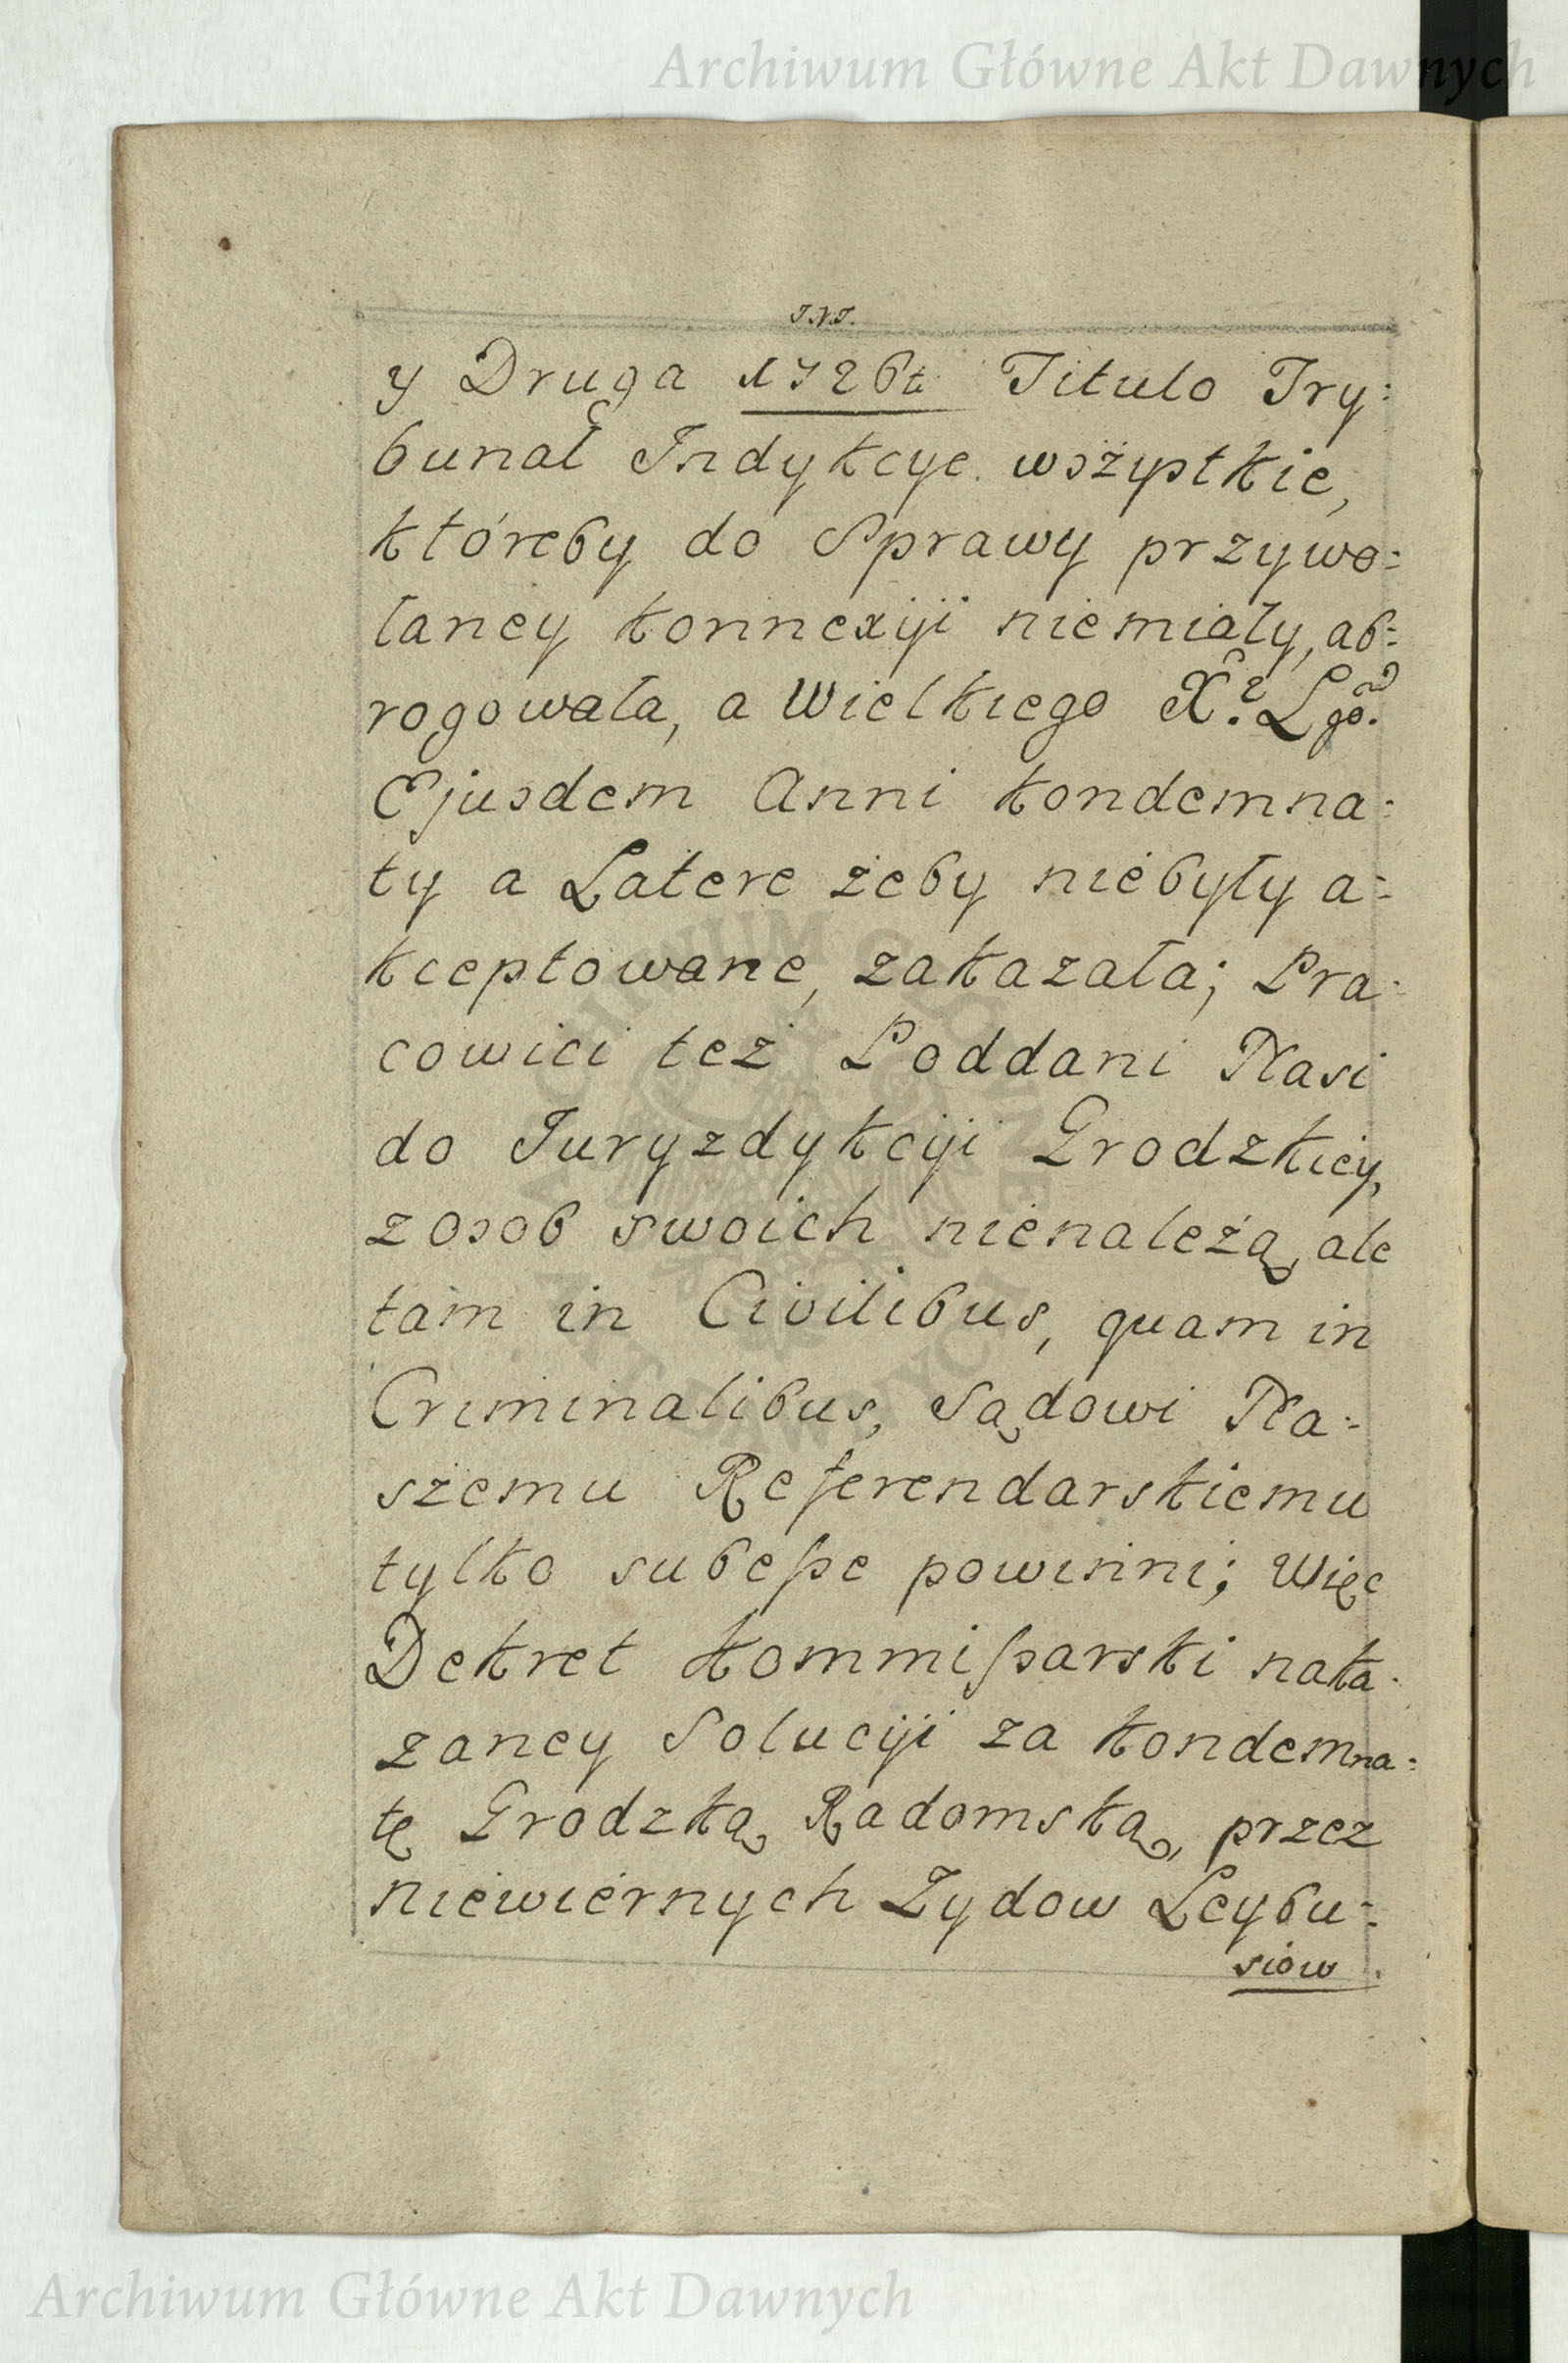 Archiwum Główne Akt Dawnych
J.N.J.
y Druga 1726t Titulo Try:
bunał Indykcye wszystkie,
któreby do Sprawy przywo:
łaney konnexyi niemiały, ab:
rogowała, a Wielkiego
Ejusdem Anni kondemna:
ty a Latere żeby niebyły a:
kceptowane, zakazała; Pra:
cowici też Poddani Nasi
do Juryzdykcyi Grodzkiey,
z osob swoich nienależą, ale
tam in Civilibus, quam in
Criminalibus, Sądowi Na:
szemu Referendarskiemu
tylko subesse powinni; Więc
Dekret kommissarski naka:
zaney Solucyi za kondemna:
tę Grodzką Radomską, przez
niewiernych Zydow Leybu:
siow
Archiwum Główne Akt Dawnych